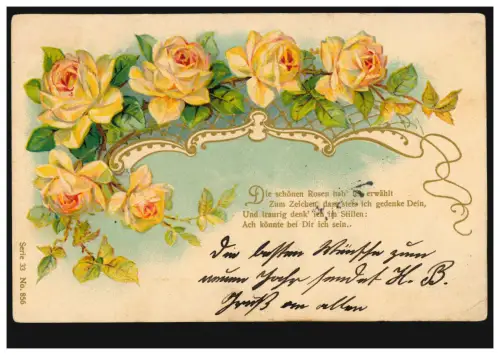 Die schönen Rosen hab' ich erwählt
Zum Zeichen, dass stets ich gedenke Dein,
Und traurig denk' ich im Stillen:
Ach könnte bei Dir ich sein..
Die besten Wünsche zum
neuen Jahr sendet H. B.
Gruß an allen
Serie 33 No. 856